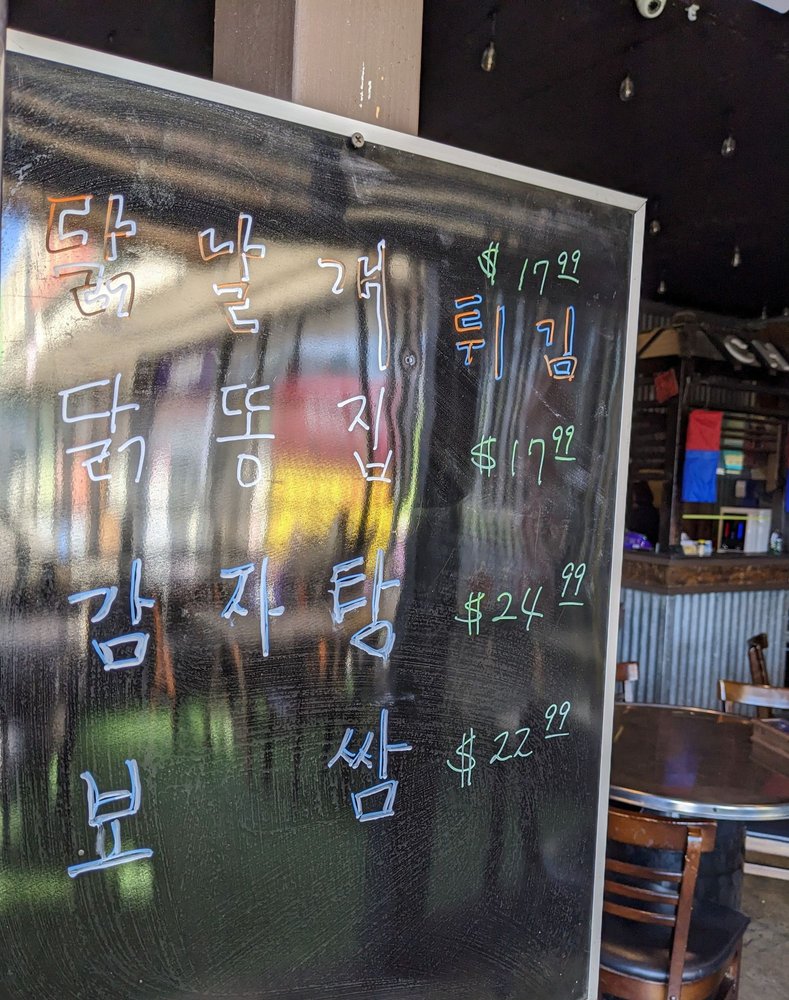 닭 날개 $17.99
튀김
닭 똥 집 $17.99
감 자 탕 $24.99
보 쌈 $22.99